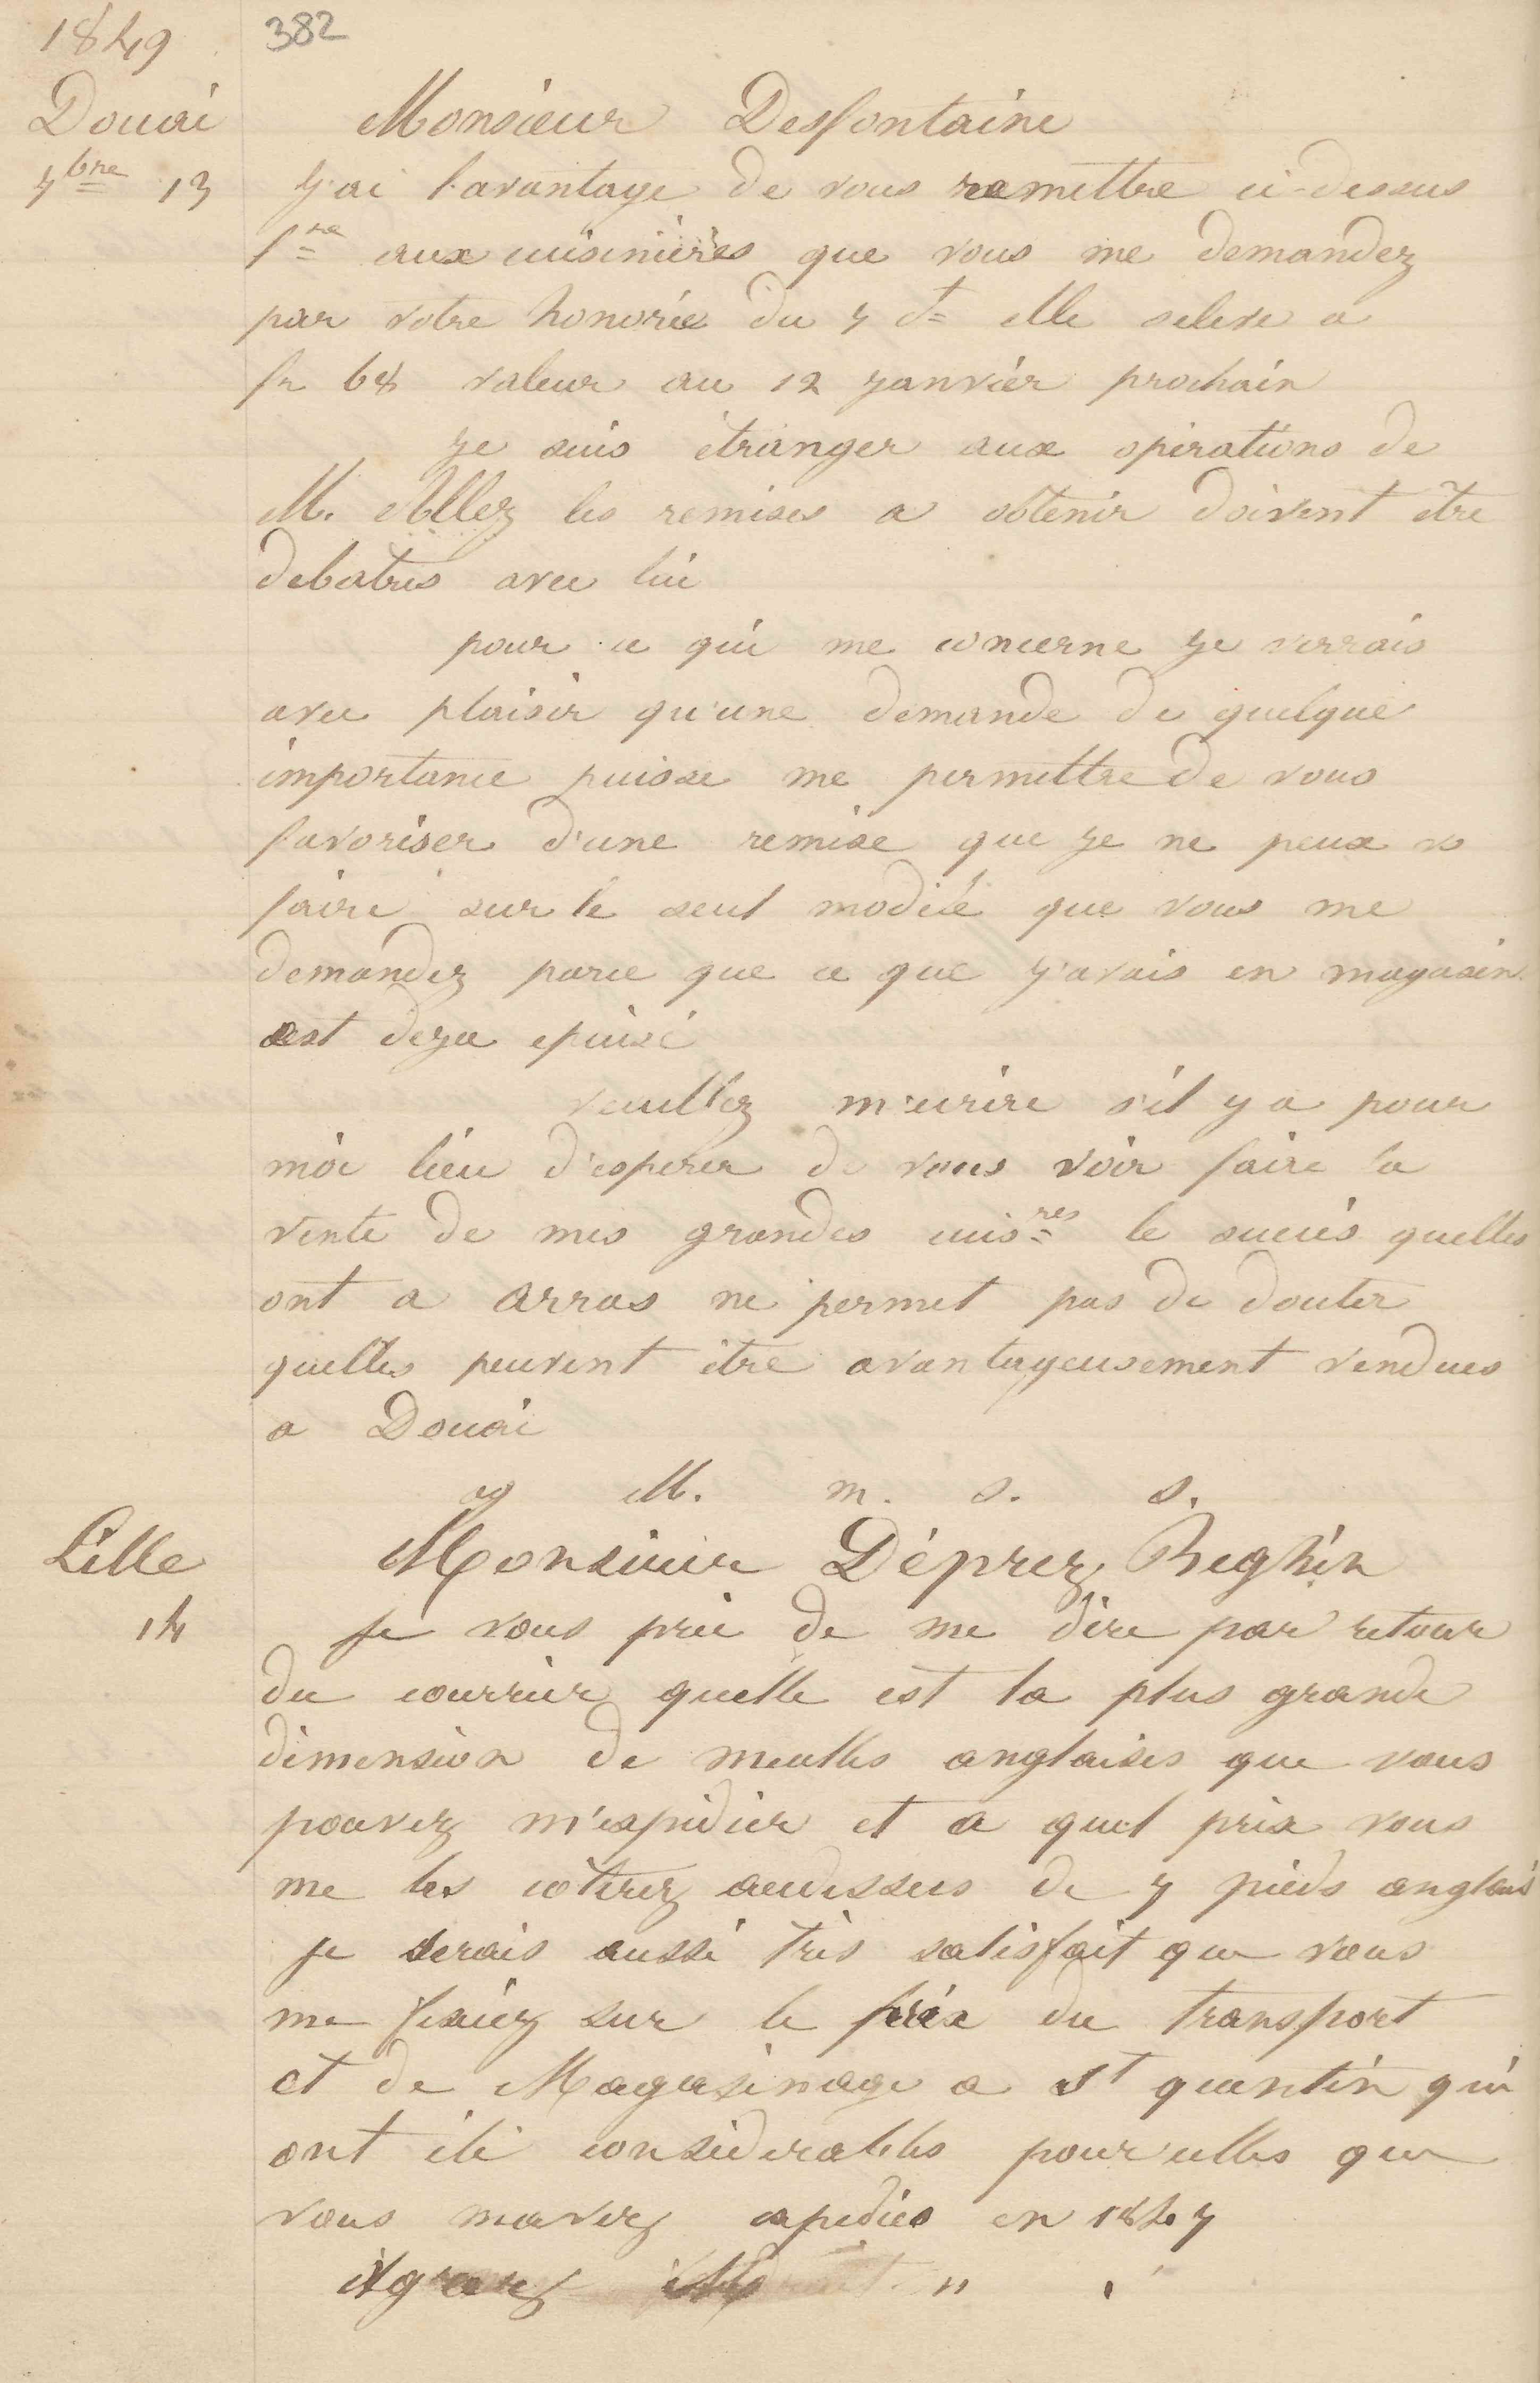 1849
382
Douai
7bre 13
Monsieur Desfontaine
J'ai l'avantage de vous remettre ci-dessus
fre aux cuisinières que vous me demandez
par votre honorée du 7 ct elle seleve a
fr 68 valeur au 12 janvier prochain
je suis étranger aux opérations de
M. Allez les remises a obtenir doivent être
debatues avec lui
pour ce qui me concerne je verrais
avec plaisir qu'une demande de quelque
importance puisse me permettre de vous
favoriser d'une remise que je ne peux vs
faire sur le seul modèle que vous me
demandez parce que ce que j'avais en magasin
est deja epuisé
veuillez m'ecrire s'il y a pour
moi lieu d'esperer de vous voir faire la
vente de mes grandes cuisres le succès quelles
ont a arras ne permet pas de douter
quelles peuvent être avantageusement vendues
a Douai
ag M. m. s. s.
Lille
14
Monsieur Déprez Beghin
je vous prie de me dire par retour
du courrier quelle est la plus grande
dimension de meulles anglaises que vous
pouvez m'expédier et a quel prix vous
me les côterez audessus de 7 pieds anglais
je serais aussi très satisfait que vous
me fixiez sur le prix du transport
et de Magasinage a St quentin qui
ont été considerables pour celles que
vous mavez expediés en 1847
agréez